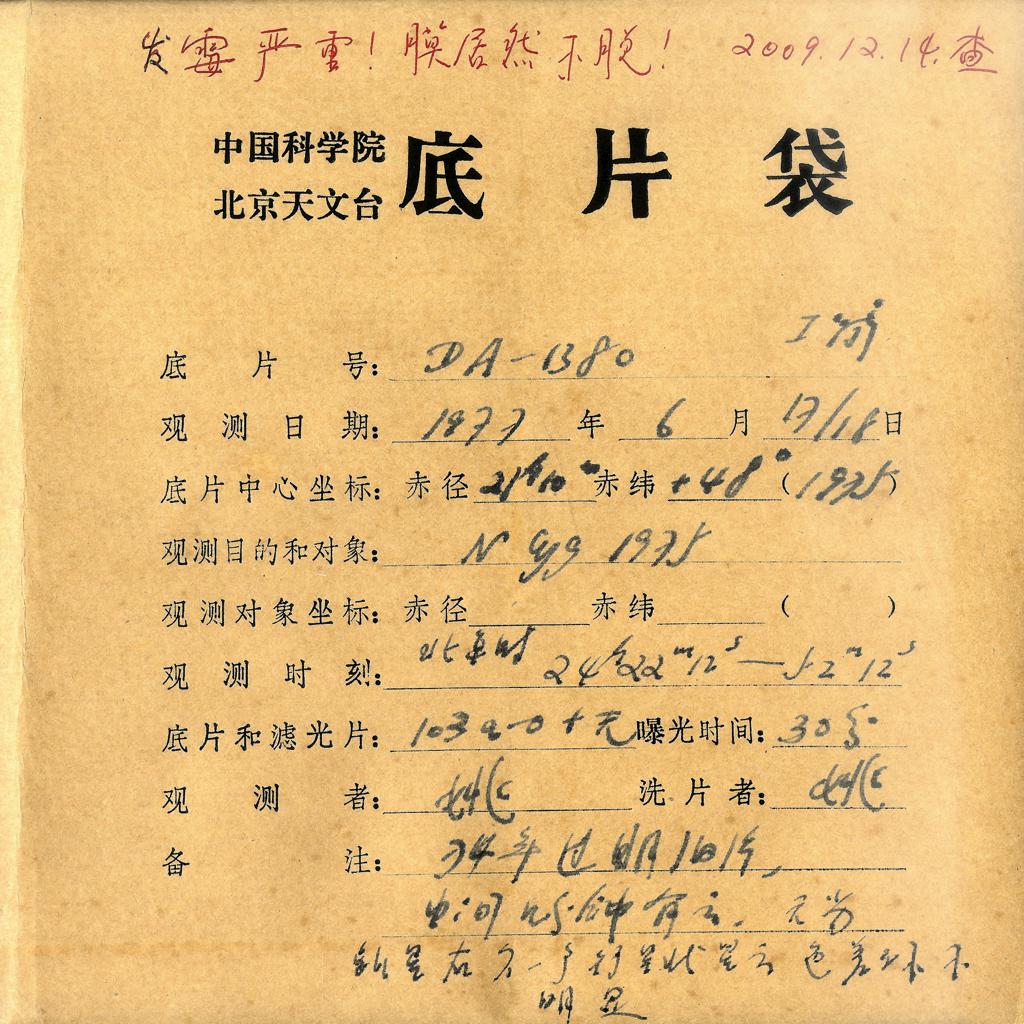 发霉严重！膜居然不脱！ 2009.12.14.查
中国科学院
北京天文台
底片袋
底片号： DA-1380
观测日期： 1977 年 6 月 17/18 日
底片中心坐标： 赤径 21ʰ10ᵐ 赤纬 +48° (1975)
观测目的和对象： N Cyg 1975
观测对象坐标： 赤径 赤纬 ( )
观测时刻： 北京时 24ʰ22ᵐ12ˢ—52ᵐ12ˢ
底片和滤光片： 103a-O+无 曝光时间： 30分
观测者： 洗片者：
备注： 74年过期 片，
中间 分钟有云. 无
新星 一 行星状星云 色差 不
明显